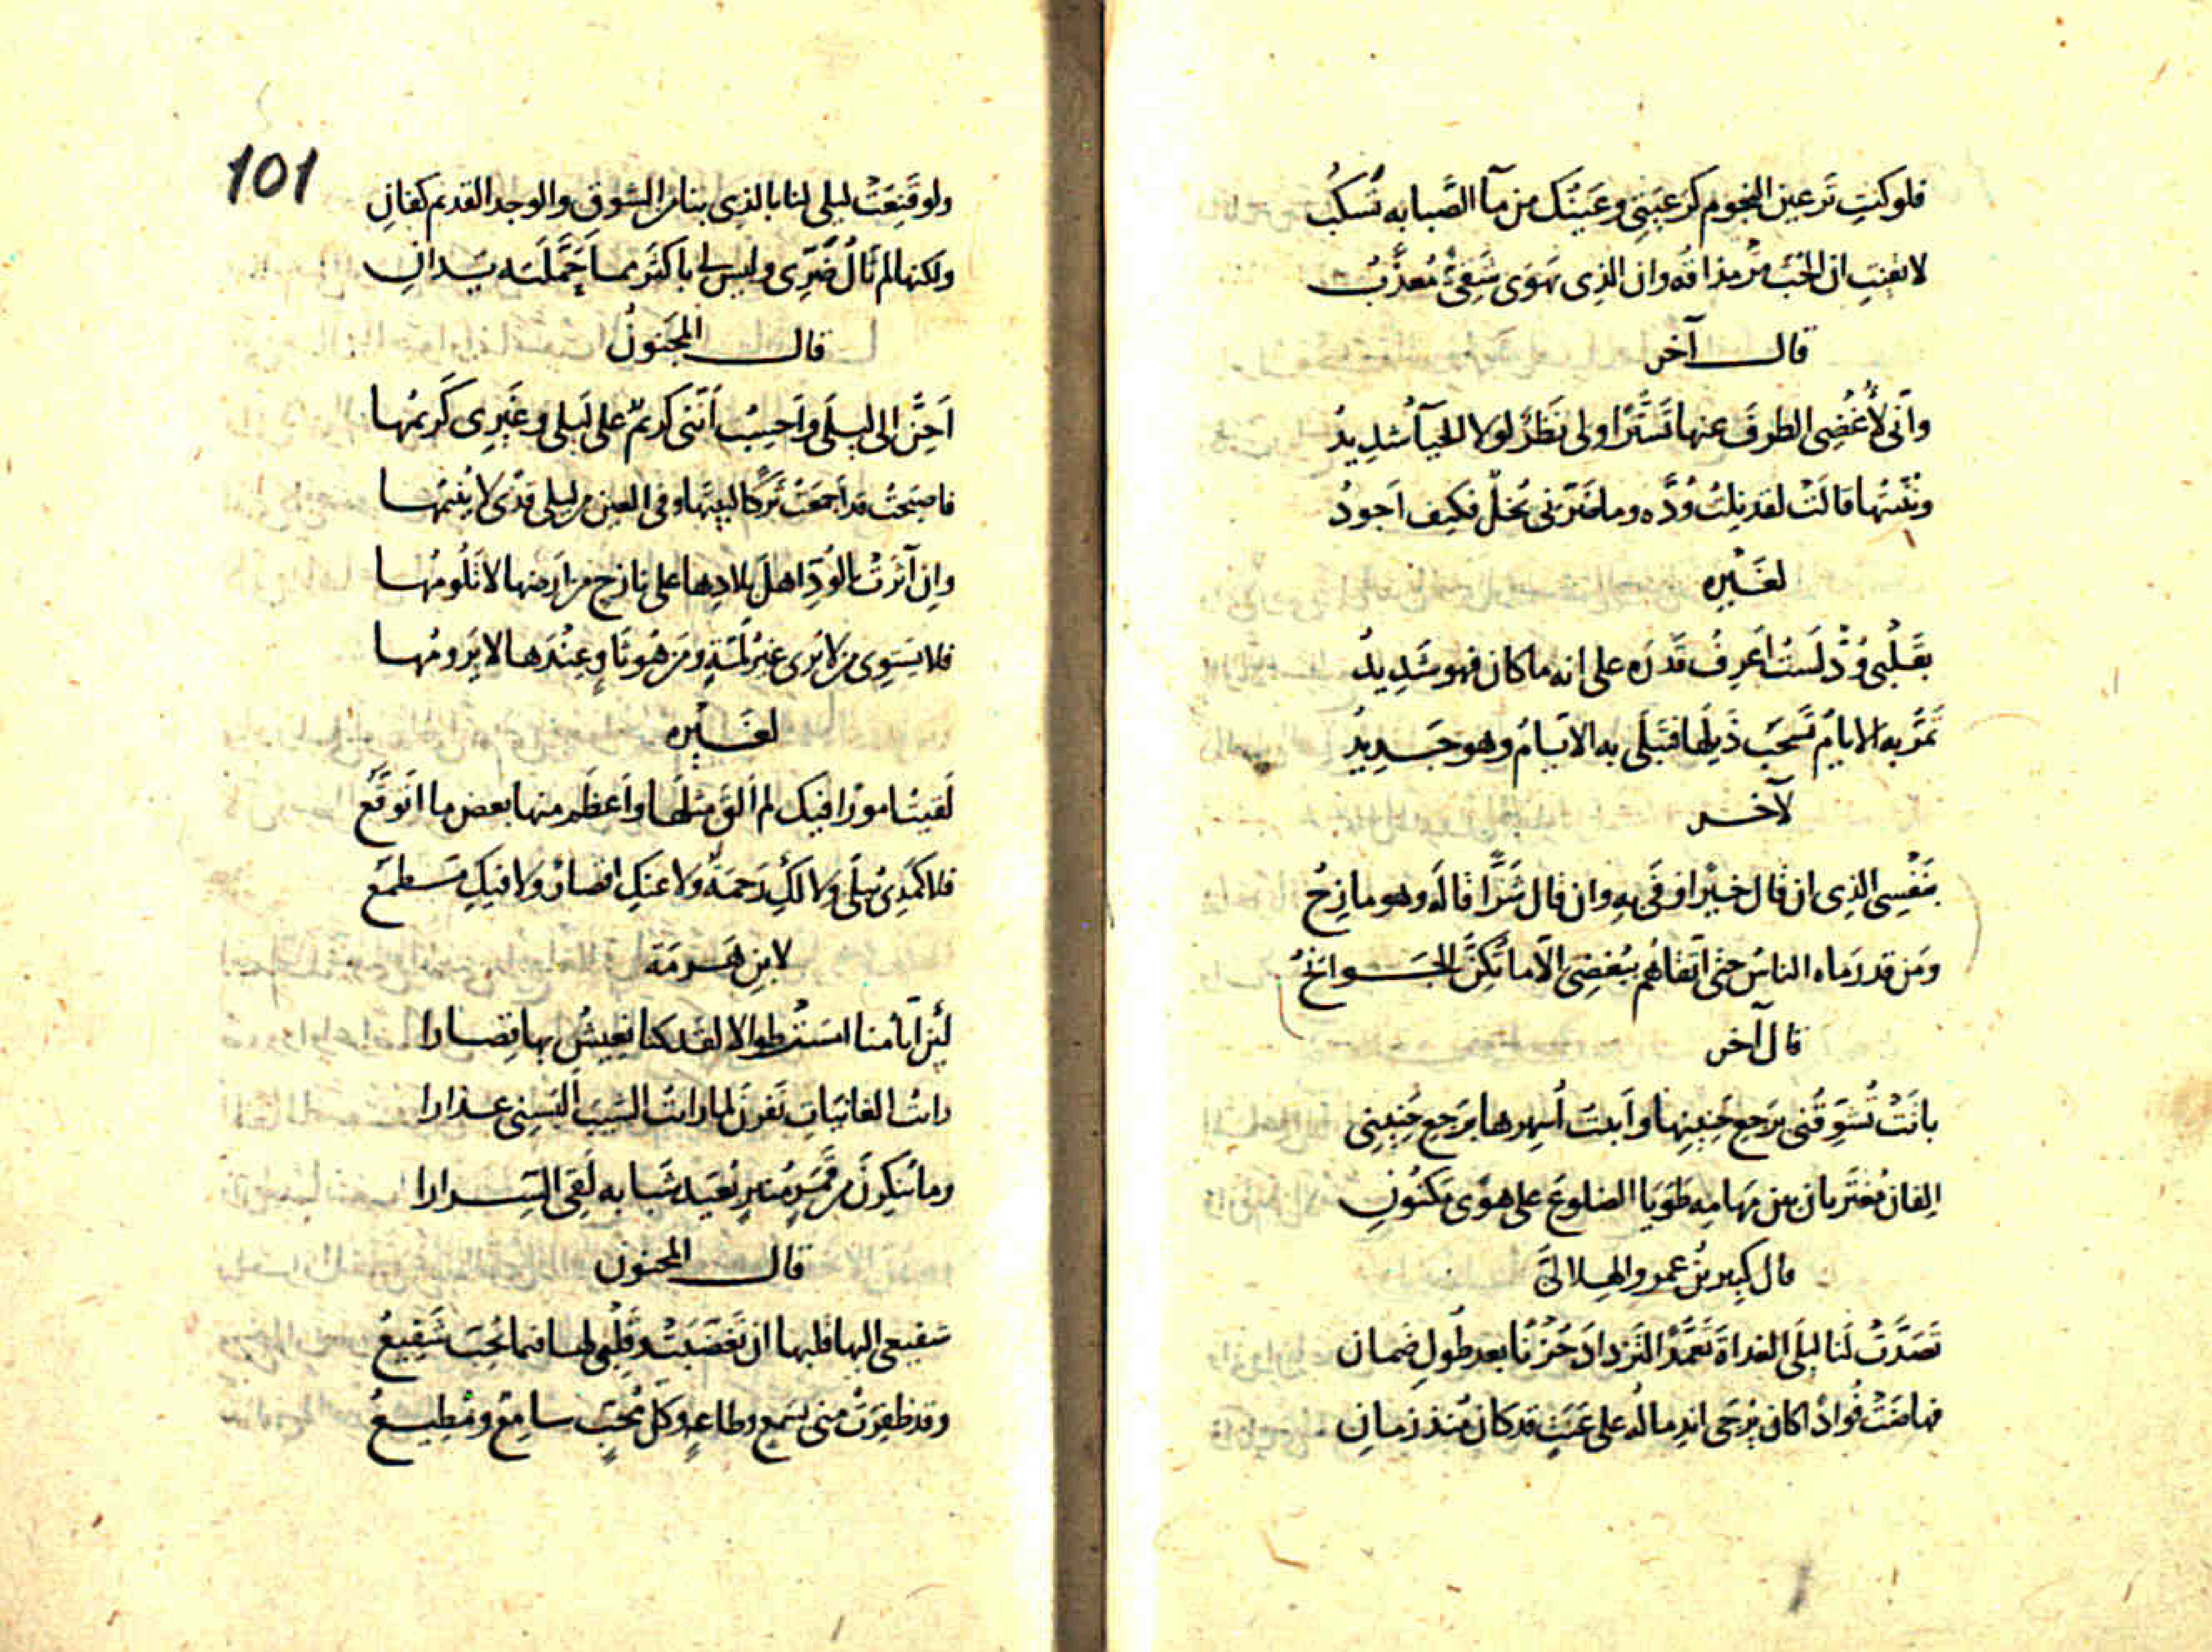 فلو كنتِ تَرعين النجوم كرَعيَتي وعَينُك من مآ الصَّبابه تُسكَبُ
لايقنتِ ان الحُبّ مُرٌّ مذاقُه وان الذي يَهوَى شقىٌّ مُعذَّبُ
قال آخر
وانّى لأُغضِى الطرفَ عنها تَسَتُّرًا ولى نَظَرٌ لولا الحيآ شديدُ
ونُبّئتُها قالَت لقد نِلتُ وُدَّه وما ضرّنى بُخلٌ فكيف اَجودُ
لغَيرِه
بقَلبى وُدٌّ لَستُ اَعرِفُ قَدرَه على انه ما كان فهو شَدِيدُ
تمُرّ به الايامُ تَسحَب ذَيلَها فتَبلَى به الايّامُ وهو جَديدُ
لآخر
بنَفسِى الذِى ان قال خيرًا وَفَى بِه وان قال شَرًّا قالَه وهو مازِحُ
ومَن قد رَماه الناسُ حتى اتقاهُم ببُغضِى الّا ما تُكِنّ الجَوانحُ
قال آخر
باتَت تُشَوّقُنى برَجعِ حَنِينِها واَبِيت اُسهِرها برَجعِ حَنِينِى
الِفان مُغتَربان بين مَهامِه طَوَيا الضلوعَ على هوًى مَكنُونِ
قال كبير بن عمرو الهلالىّ
تَصَدَّت لَنا ليلَى الغداةَ تعَمُّدًا لنَزدادَ حُزنًا بعد طُولِ ضمانِ
فهاضَت فُوادًا كان يُرجَى اندِمالُه على عَنَتٍ قد كان مُنذ زمانِ
101
ولو قَنِعَت ليلى لنا بالذى بنا من الشوقِ والوجد القديم كفانِى
ولكنها لم تَالُ ضُرّى وليس لى باكثَر مما حَمَّلَته يَدانِ
قال المجَنونُ
اَحِنّ الى ليلَى واَحسِبُ اَنَّنى كريمٌ على ليلى وغَيرِى كَرِيمُها
فاصبَحتُ قد اَجمَعتُ تَركًا لبيتها وفى العين من ليلى قذًى لا يُنيمُها
وان آثَرَت بالودّ اهلَ بلادِها على نازحٍ من ارضها لا نَلُومُها
فلا يَستَوِى من لا يَرى غيرَ لَمّةٍ ومَن هُو ثاوٍ عِندَها لا يَرومُها
لغَيرِه
لَقيتُ امورًا فيك لم اَلقَ مثلَها واَعظَمُ منها بعض ما اتَوقّعُ
فلا كَمَدِى يَبلَى ولا لكِ رَحمَةٌ ولا عنكِ اقصارٌ ولا فيكِ مَطمَعُ
لابنِ هَرمَة
لَئِن اَيّامُنا امسَت طِوالا لقد كنا نَعِيشُ بها قِصارا
راتُ الغانيَاتِ نَفرنَ لما راَينَ الشَيبَ اَلبَسَنِى عِذارا
وما يُنكِرنَ من قَمَرٍ مُنيرٍ بُعَيد شَبابه لَقِى السِرارا
قال المجنون
شفيعى اليها قلبها ان تَغَضّبَت وقَلبِى لها فيما تُحِبّ شَفِيعُ
وقد ظفِرَت منى بسَمعٍ وطاعةٍ وكلُّ مُحِبٍّ سامِعٌ ومُطِيعُ